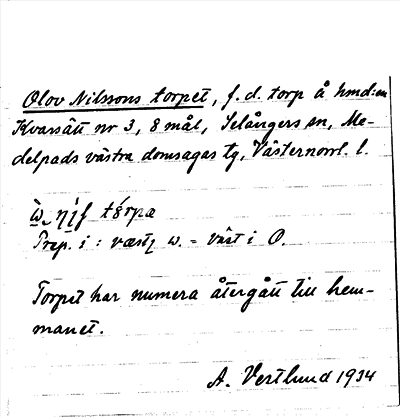 Olov Nilssons torpet, f. d. torp å hmd:en
Kvarsätt nr 3, 8 mål, Selångers sn, Me-
delpads västra domsagas tg, Västernorrl. l.
tǵrpæ
Prep. i : væstɩ w. = väst i O.
Torpet har numera återgått till hem-
manet.
A. Vestlund 1934